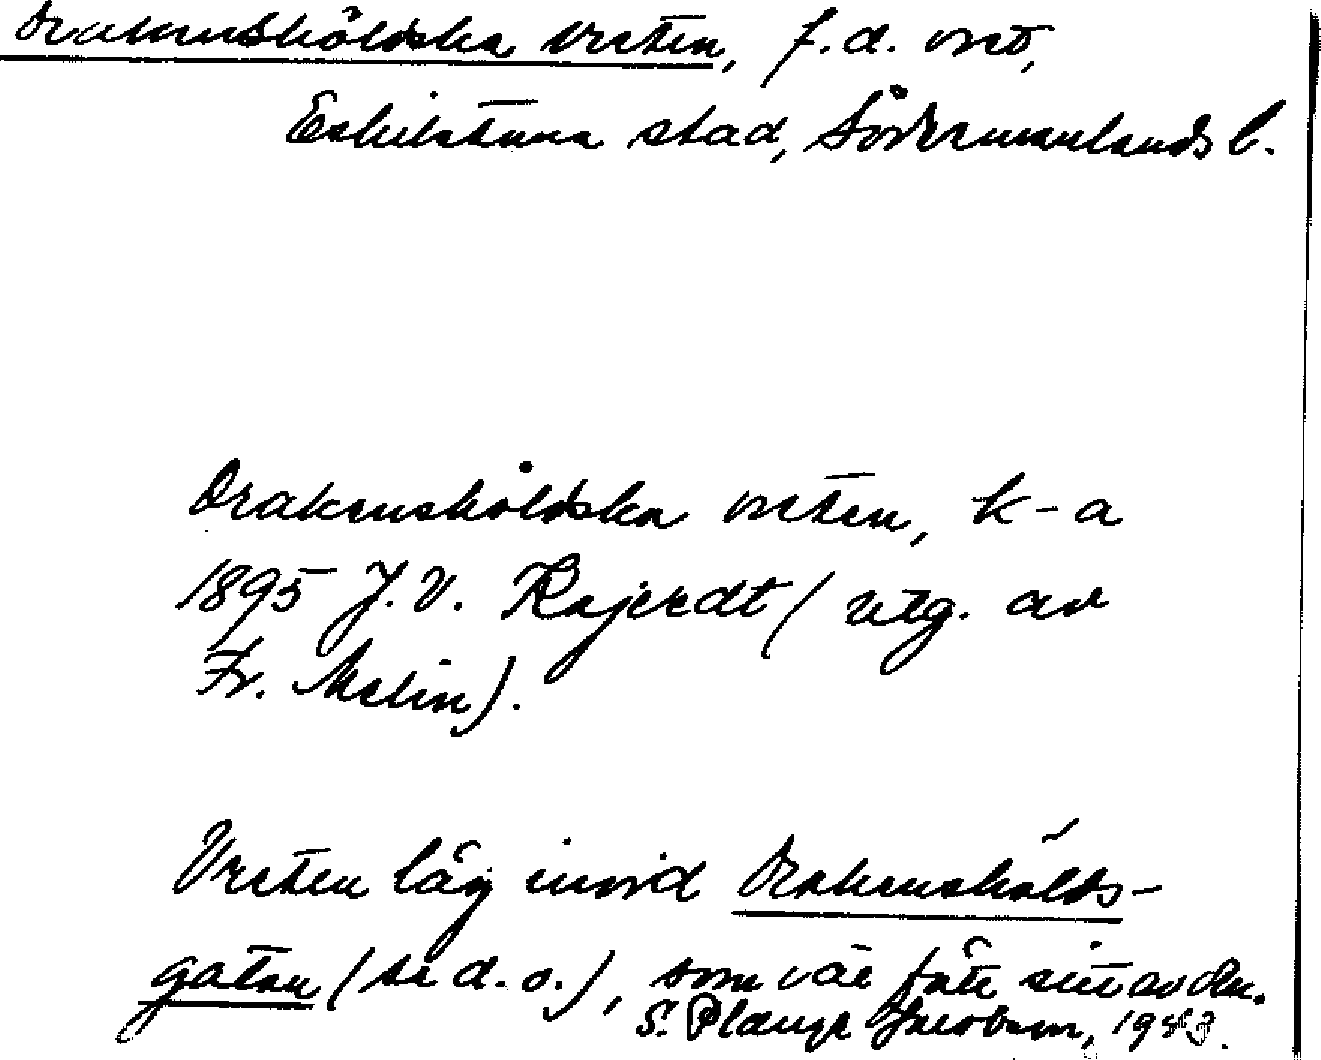 Drakensköldska vreten, f.d. vret,
Eskilstuna stad, Södermanlands l.
Drakensköldska vreten, k-a
1895 J. V. Kajerdt (utg. av
Fr. Melin).
Vreten låg invid Drakenskölds-
gatan (se d. o.), som väl fått sitt av den.
S. Jacobson, 19